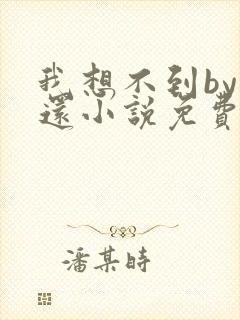 我想不到by
還小說免費
潘某時